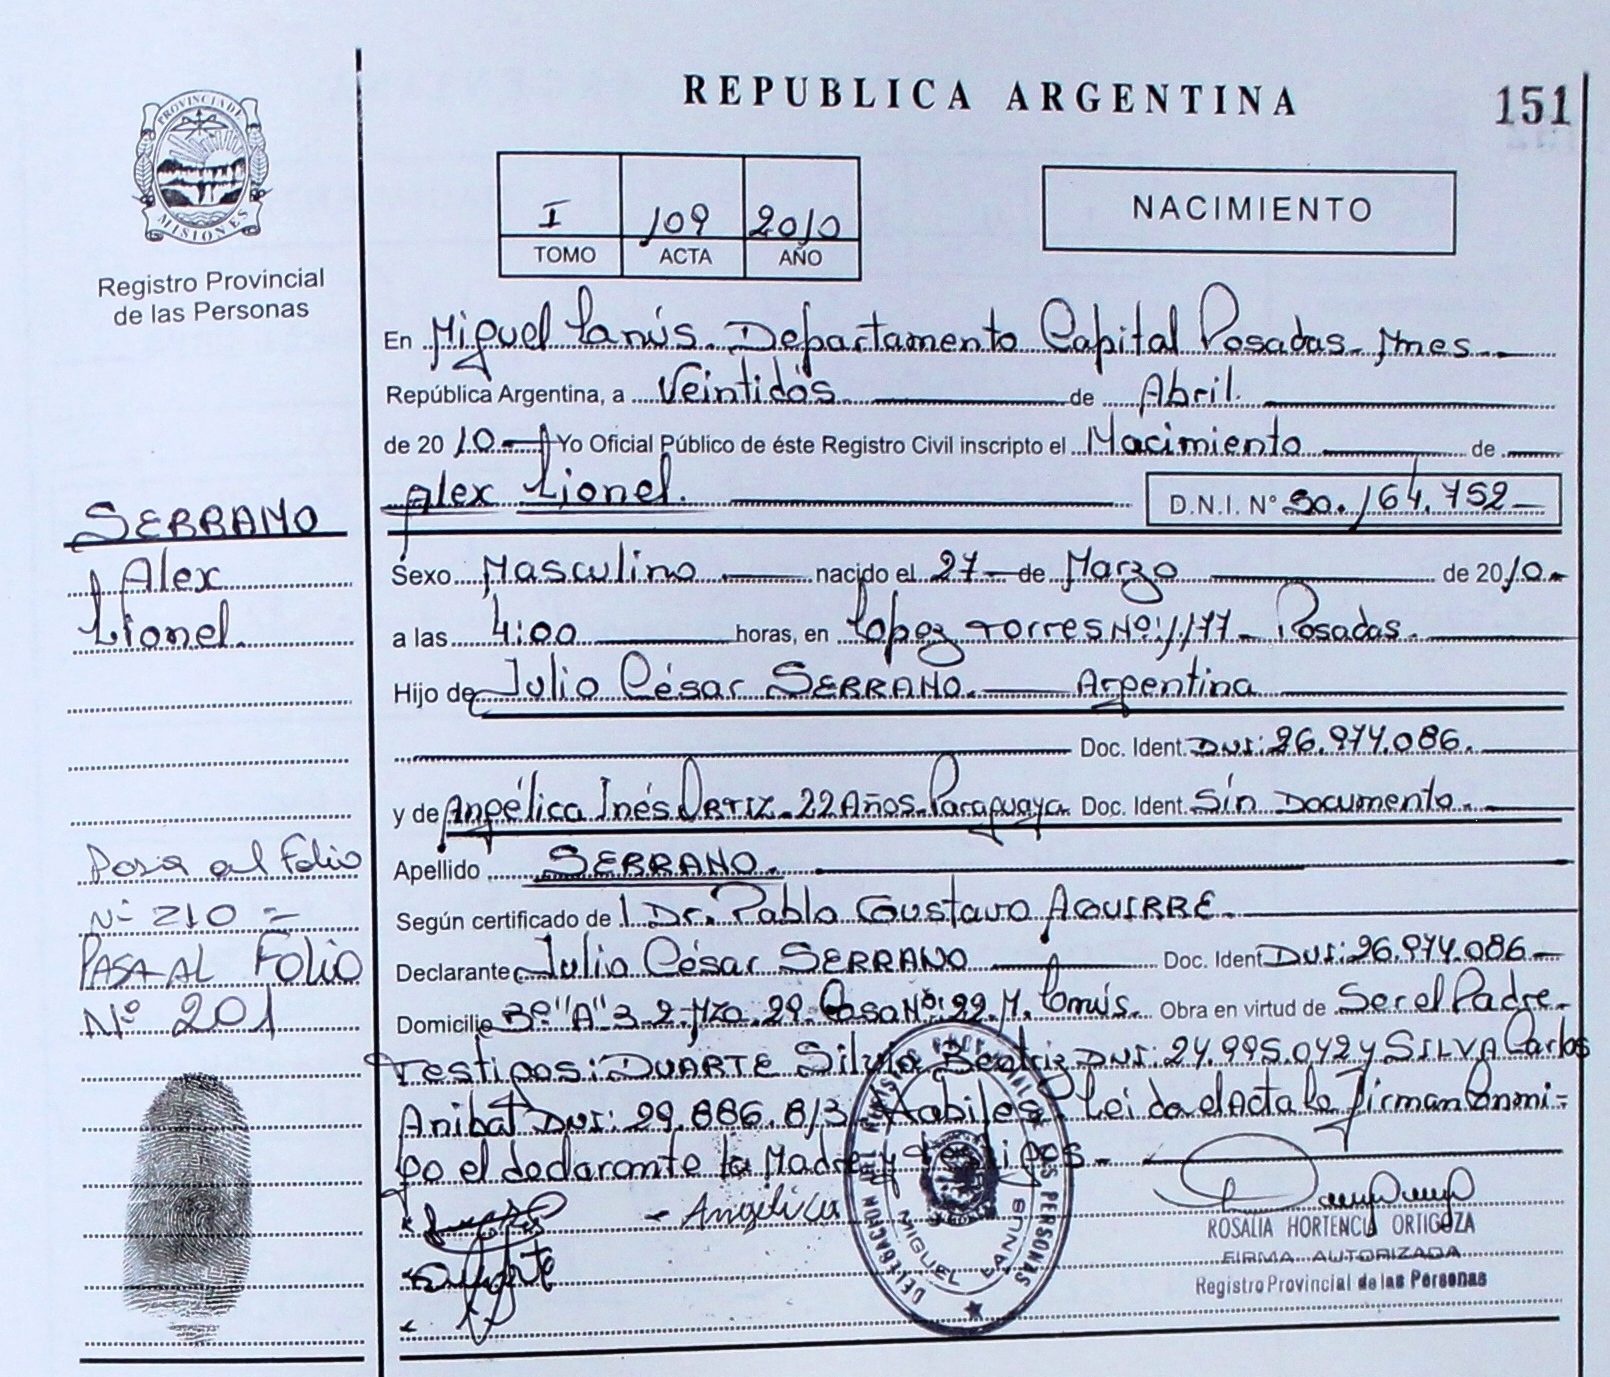 REPUBLICA ARGENTINA
151
PROVINCIA DE
MISIONES
Registro Provincial
de las Personas
I 109 2010
TOMO ACTA AÑO
NACIMIENTO
En Miguel Lanús. Departamento Capital Posadas- Mnes
República Argentina, a Veintidós de Abril.
de 20 10 Yo Oficial Público de éste Registro Civil inscripto el Nacimiento de
Alex Lionel. D.N.I. N° 50.164.752
SERRANO
Alex
Lionel.
Sexo Masculino nacido el 27 de Marzo de 20 10.
a las 4:00 horas, en Lopez Torres Nº: 1177 - Posadas.
Hijo de Julio César SERRANO. Argentina
Doc. Ident. DNI: 26.974.086.
y de Angélica Inés Ortiz. 22 Años. Paraguaya Doc. Ident. Sin Documento.
Apellido SERRANO.
Según certificado de Dr. Pablo Gustavo AGUIRRE.
Declarante Julio César SERRANO Doc. Ident DNI: 26.974.086
Domicilio Bº "A" 3.2. Mza. 29. Casa Nº: 22. M. Lanús. Obra en virtud de Ser el Padre.
Testigos: DUARTE Silvia Beatriz DNI: 24.995.042 y SILVA Carlos
Anibal DNI: 29.886.813 Habiles. Leida el Acta la firman conmi=
go el declarante la Madre y testigos.
Pasa al Folio
Nº 210 =
PASA AL FOLIO
Nº 201
Angélica
DELEGACION
MIGUEL LANUS
PERSONAS
ROSALIA HORTENCIA ORTIGOZA
FIRMA AUTORIZADA
Registro Provincial de las Personas